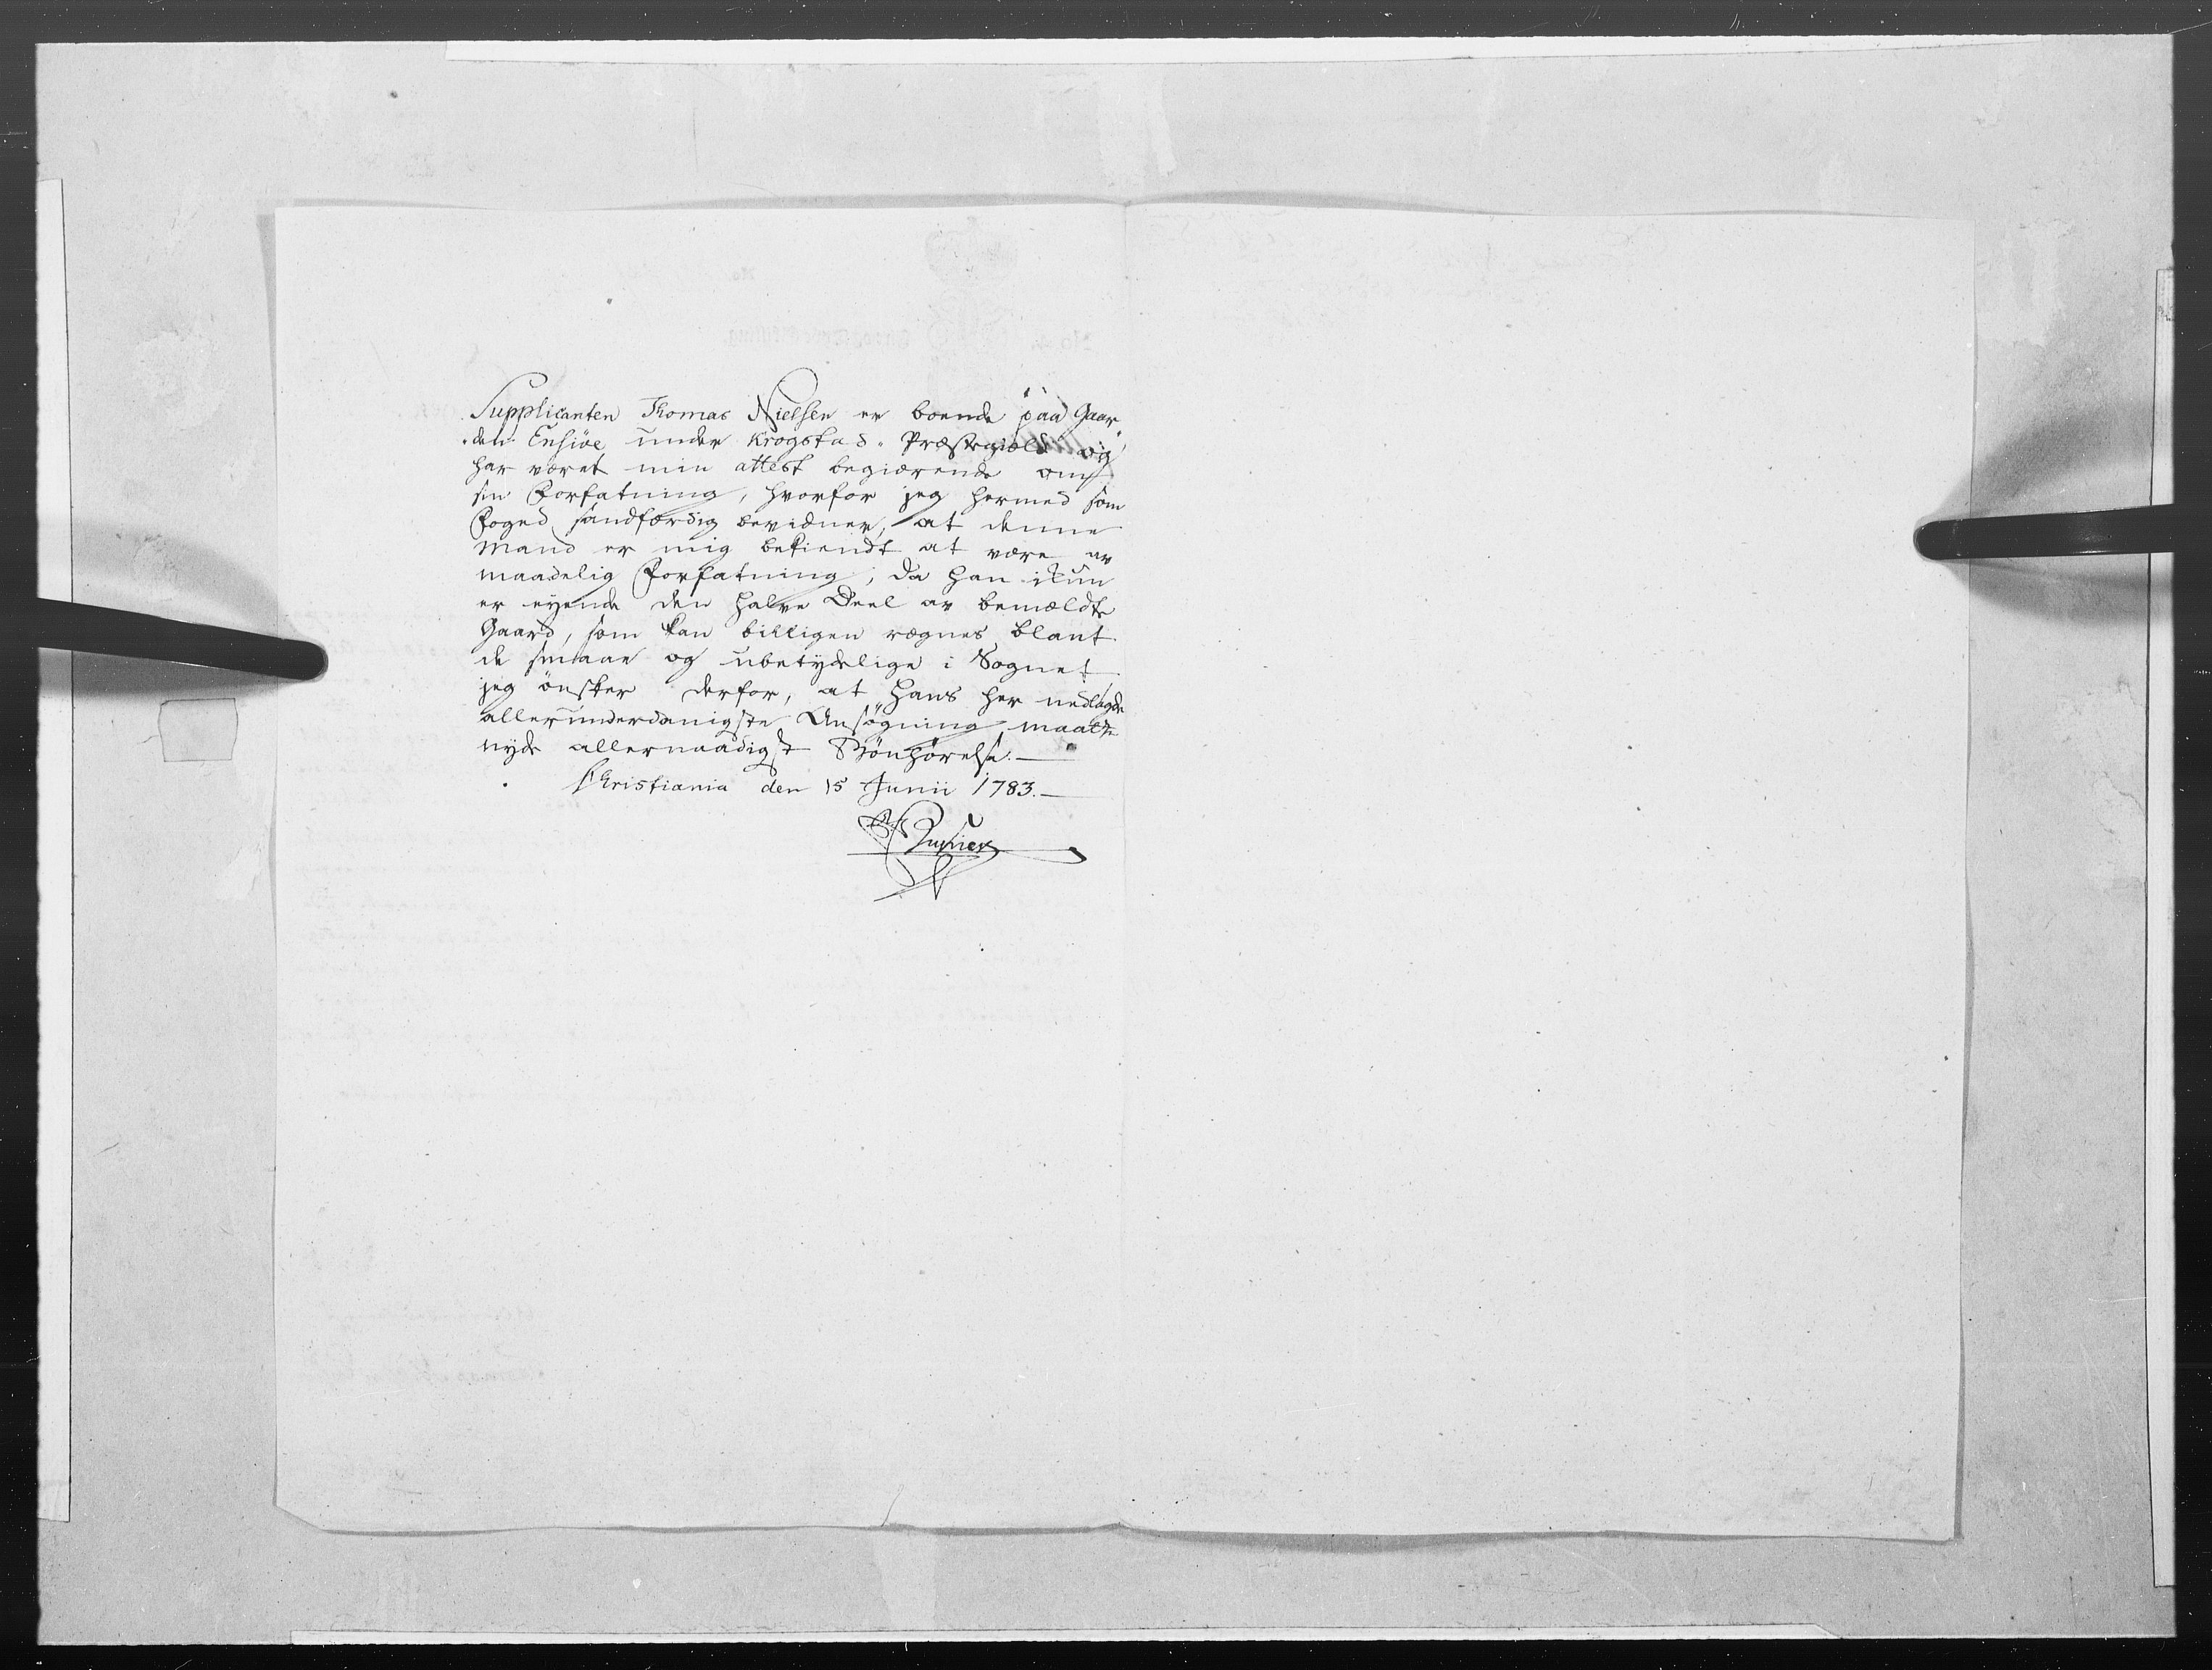 Supplicanten Thomas Nielsen er boende paa Gaar-
den Ensiøe under Krogstad Præstegield og
har været min attest begiærende om
sin Forfatning, hvorfor jeg hermed som
Foged sandfærdig bevidner, at denne
Mand er mig bekiendt at være av
maadelig Forfatning, da han ikun
er eyende den halve Deel av bemældte
Gaard, som kan billigen regnes blant
de smaae og ubetydelige i Sognet
jeg ønsker derfor, at hans her nedlagde
allerunderdanigste Ansøgning maatte
nyde allernaadigst Bønhørelse.
Christiania den 15 Junii 1783.